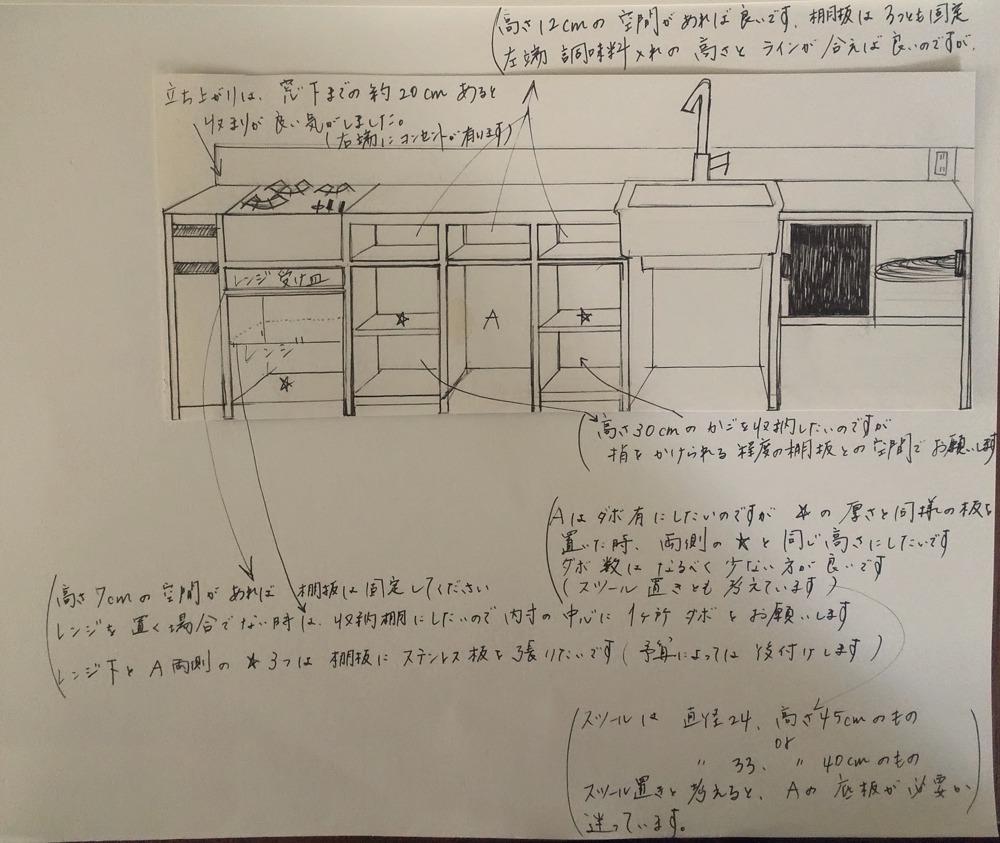 高さ12cmの空間があれば良いです。棚板は3つとも固定
左端 調味料入れの高さとラインが合えば良いのですが、
立ち上がりは、窓下までの約20cmあると
収まりが良い気がしました。
(右端にコンセントが有ります)
レンジ受け皿
レンジ
☆
☆
A
☆
高さ30cmのカゴを収納したいのですが
指をかけられる程度の棚板との空間でお願いします
Aはダボ有にしたいのですが ☆の厚さと同様の板を
置いた時、両側の☆と同じ高さにしたいです
ダボ数はなるべく少ない方が良いです
(スツール置きとも考えています)
高さ7cmの空間があれば 棚板は固定してください
レンジを置く場合でない時は、収納棚にしたいので内寸の中心に1ヶ所ダボをお願いします
レンジ下とA両側の☆3つは棚板にステンレス板を張りたいです(予算によっては後付けします)
スツールは 直径24、高さ45cmのもの
or
〃 33、〃 40cmのもの
スツール置きと考えると、Aの底板が必要か
迷っています。